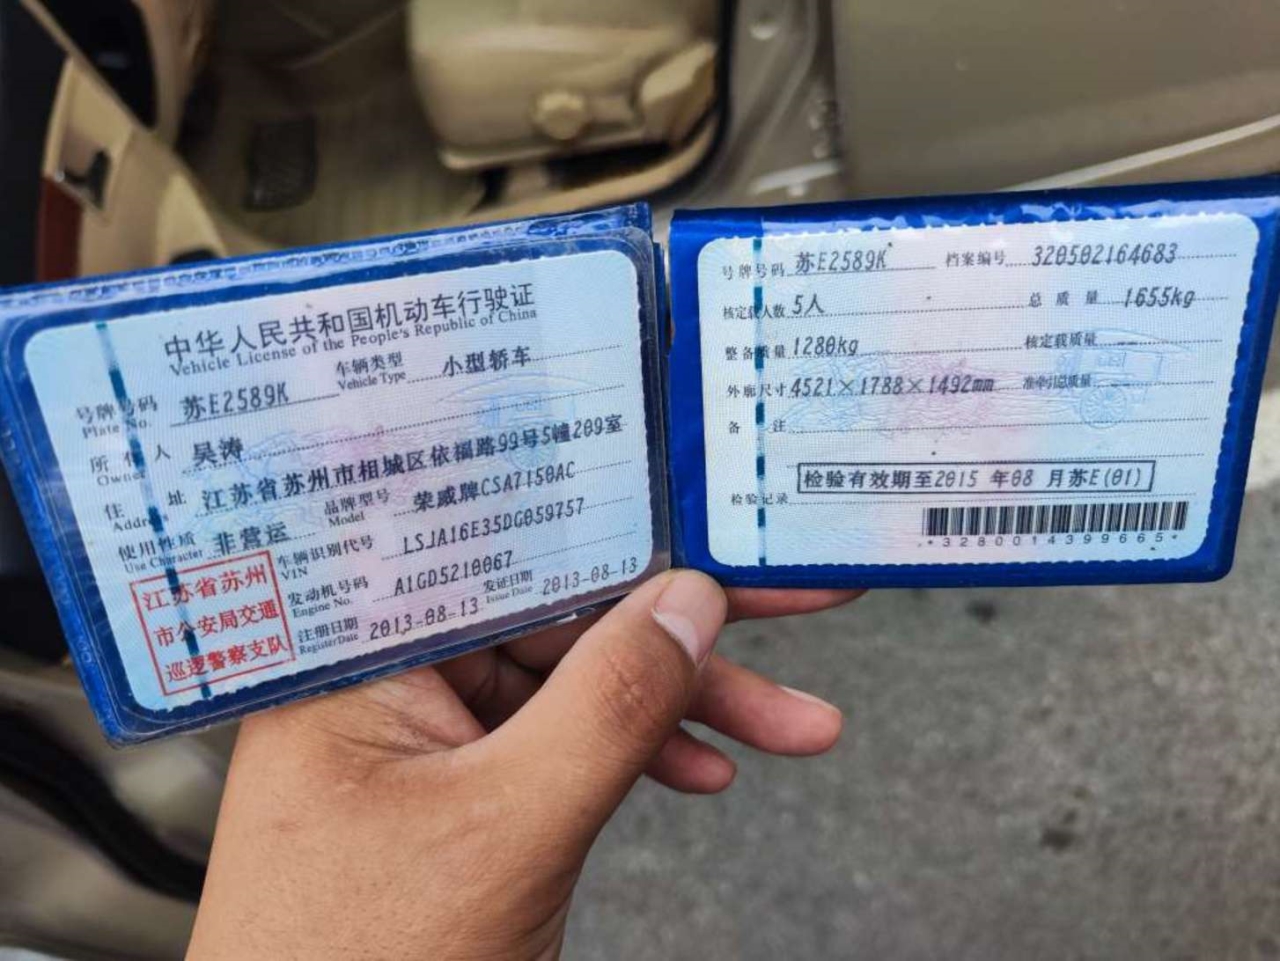 中华人民共和国机动车行驶证
Vehicle License of the People's Republic of China
号牌号码 苏E2589K 车辆类型 小型轿车
Plate No. Vehicle Type
所有人 吴涛
Owner
住址 江苏省苏州市相城区依福路99号5幢209室
Address
使用性质 非营运 品牌型号 荣威牌CSA7150AC
Use Character Model
车辆识别代号 LSJA16E35DG059757
VIN
发动机号码 A1GD5210067
Engine No.
注册日期 2013-08-13 发证日期 2013-08-13
Register Date Issue Date
江苏省苏州
市公安局交通
巡逻警察支队
号牌号码 苏E2589K 档案编号 320502164683
核定载人数 5人 总质量 1655kg
整备质量 1280kg 核定载质量
外廓尺寸 4521×1788×1492mm 准牵引总质量
备注
检验记录 检验有效期至2015年08月苏E(01)
*3280014399665*